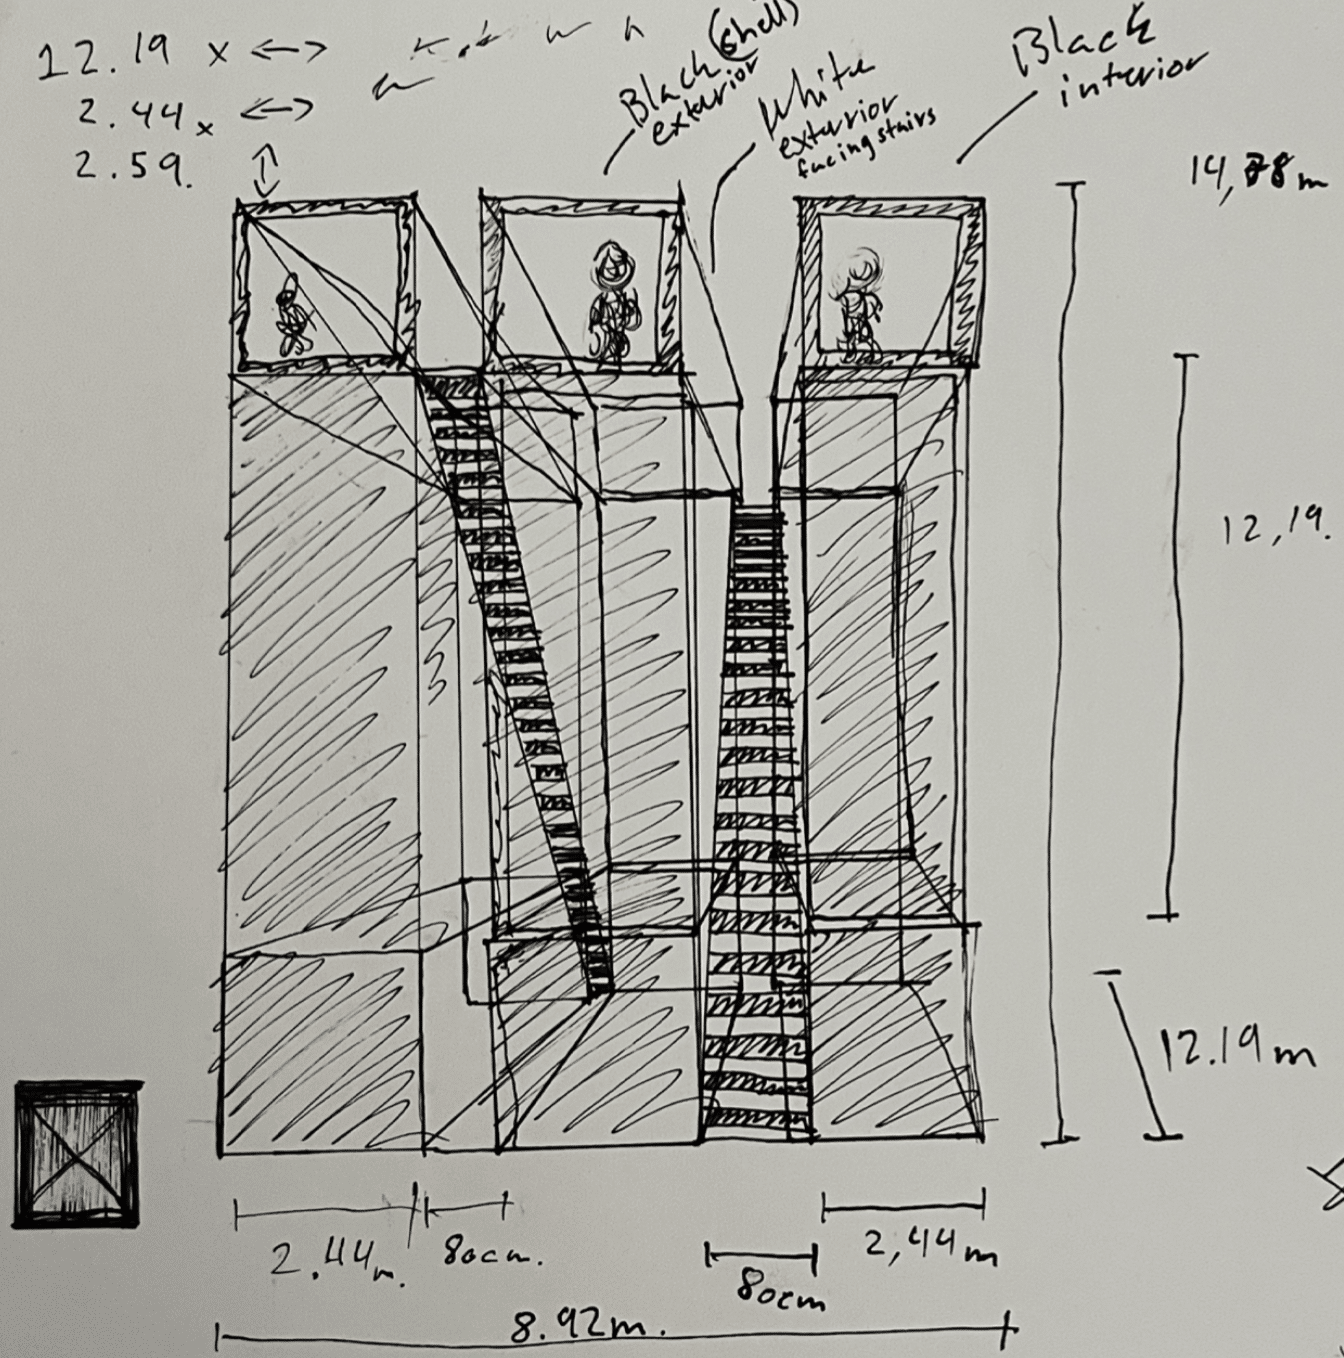 12.19 x ↔
2.44 x ↔
2.59. ↕
Black (shell)
exterior
White
exterior
facing stairs
Black
interior
12,19.
12.19m
2.44m.
80cm.
80cm
2,44m
8.92m.